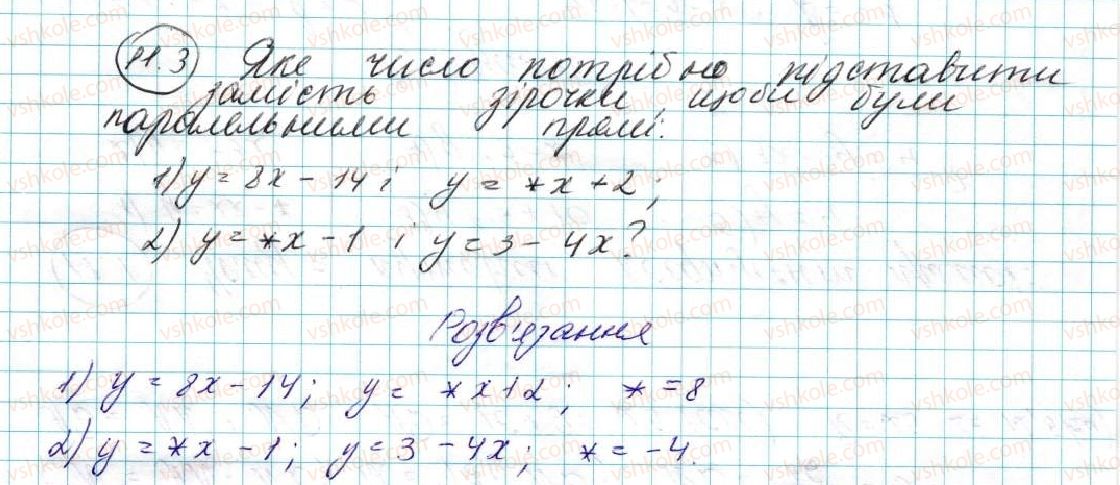 11.3 Яке число потрібно підставити
замість зірочки, щоби були
паралельними прямі:
1) y = 8x - 14 і y = *x + 2;
2) y = *x - 1 і y = 3 - 4x?
Розв'язання
1) y = 8x - 14; y = *x + 2; * = 8
2) y = *x - 1; y = 3 - 4x; * = -4.